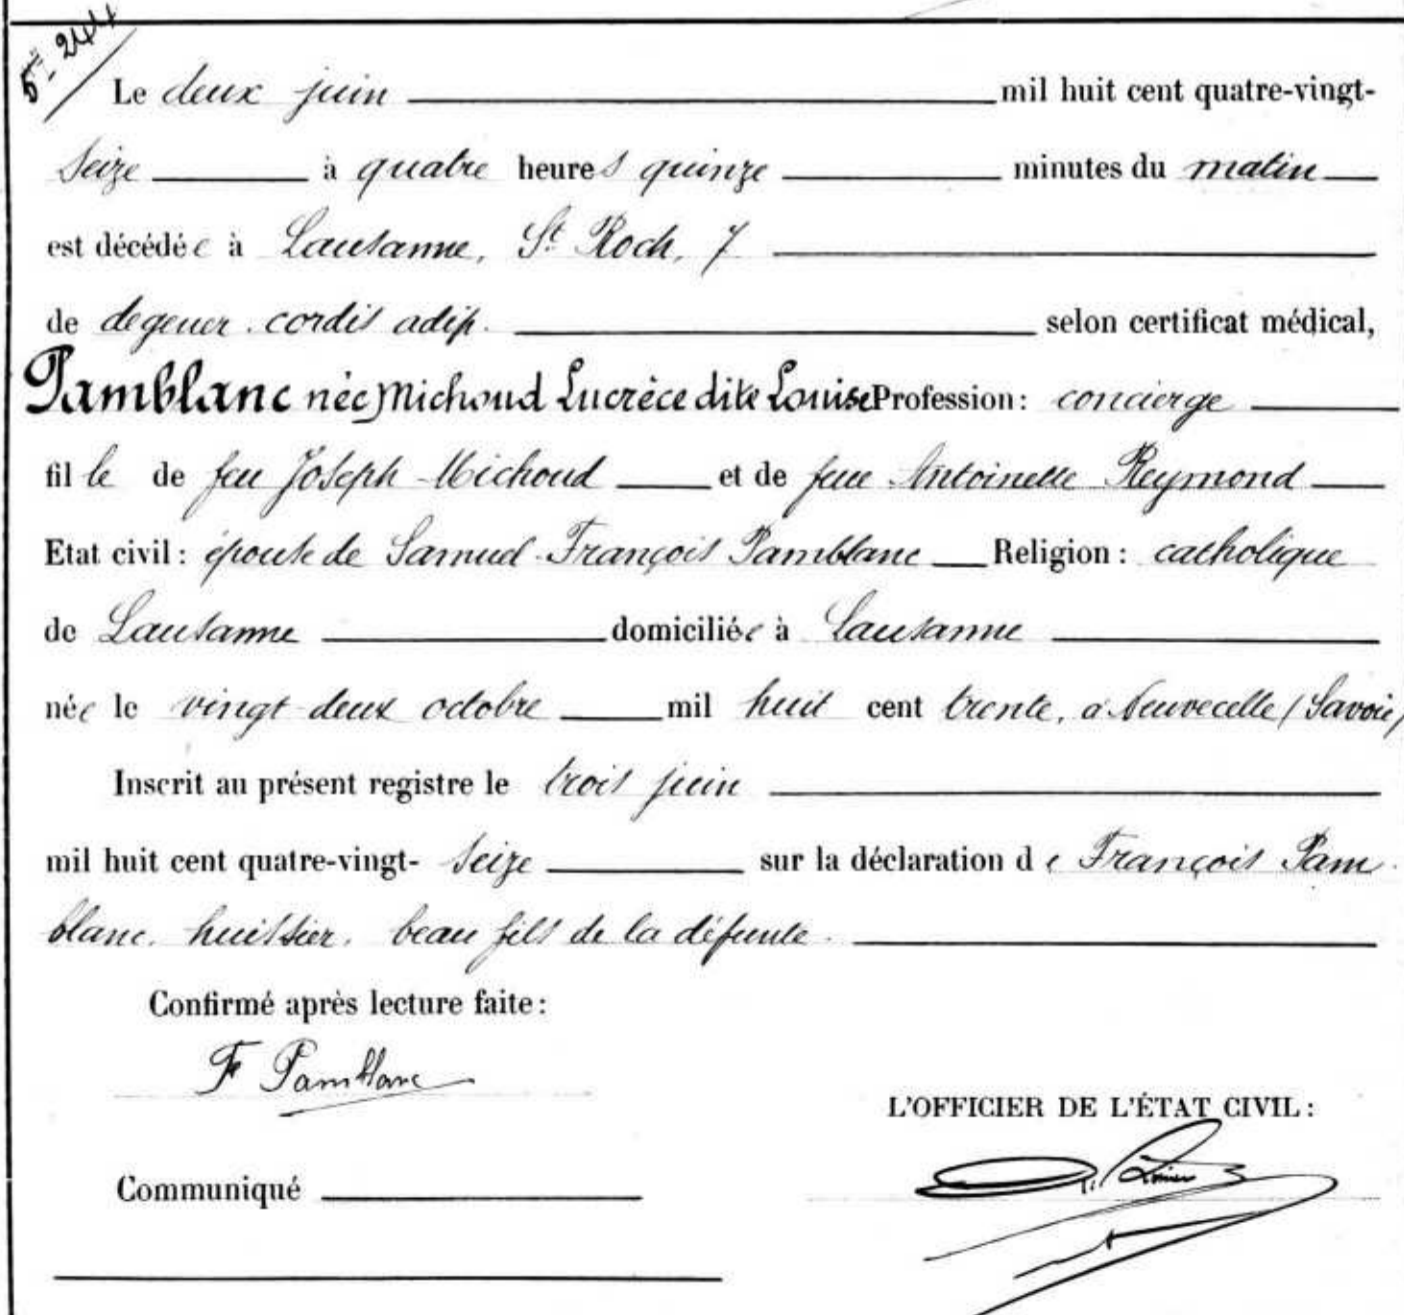 5. 244
Le deux juin mil huit cent quatre-vingt-
seize à quatre heures quinze minutes du matin
est décédée à Lausanne, St Roch, 7
de degener. cordis adip. selon certificat médical,
Pamblanc née Michoud Lucrèce dite Louise Profession: concierge
fille de feu Joseph Michoud et de feue Antoinette Reymond
Etat civil: épouse de Samuel-François Pamblanc Religion: catholique
de Lausanne domiciliée à Lausanne
née le vingt-deux octobre mil huit cent trente, à Neuvecelle (Savoie)
Inscrit au présent registre le trois juin
mil huit cent quatre-vingt- seize sur la déclaration de François Pam-
blanc, huissier, beau fils de la défunte.
Confirmé après lecture faite:
F Pamblanc
L'OFFICIER DE L'ÉTAT CIVIL:
Communiqué